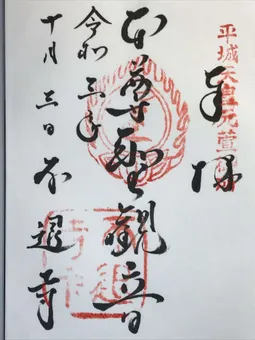 平城天皇元萱
奉拝
本尊聖観音
令和三年
十月三日
不退寺